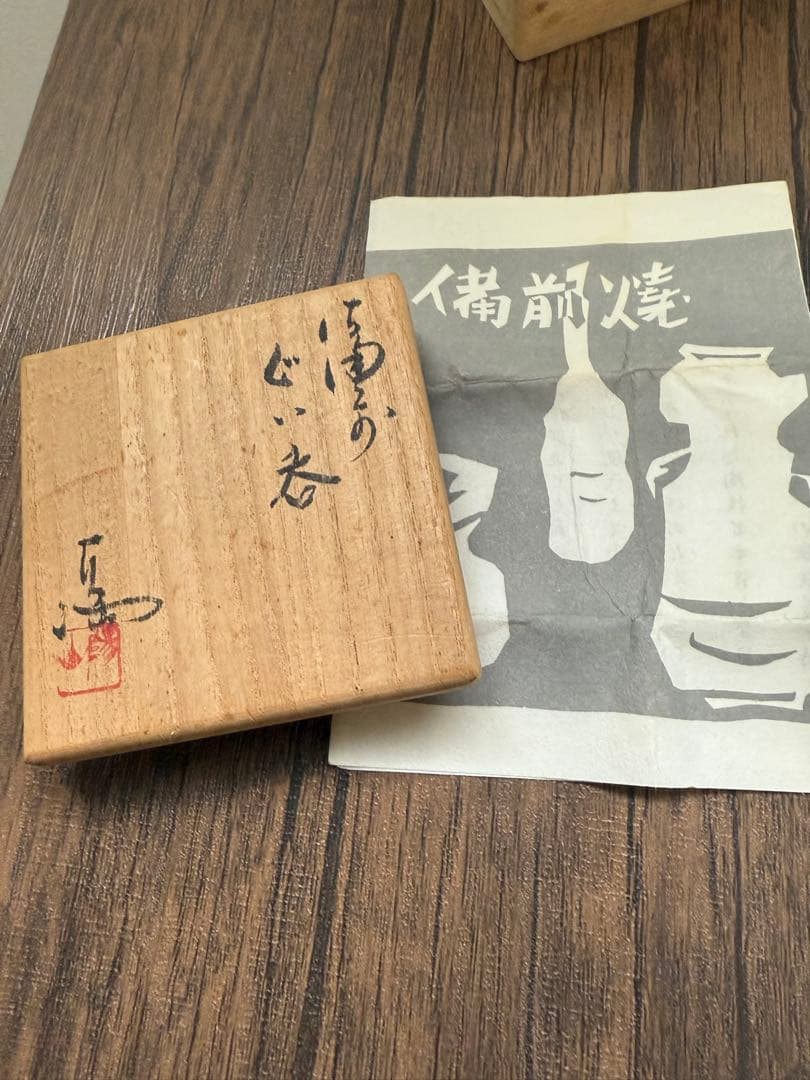 備前
ぐい呑
備前焼